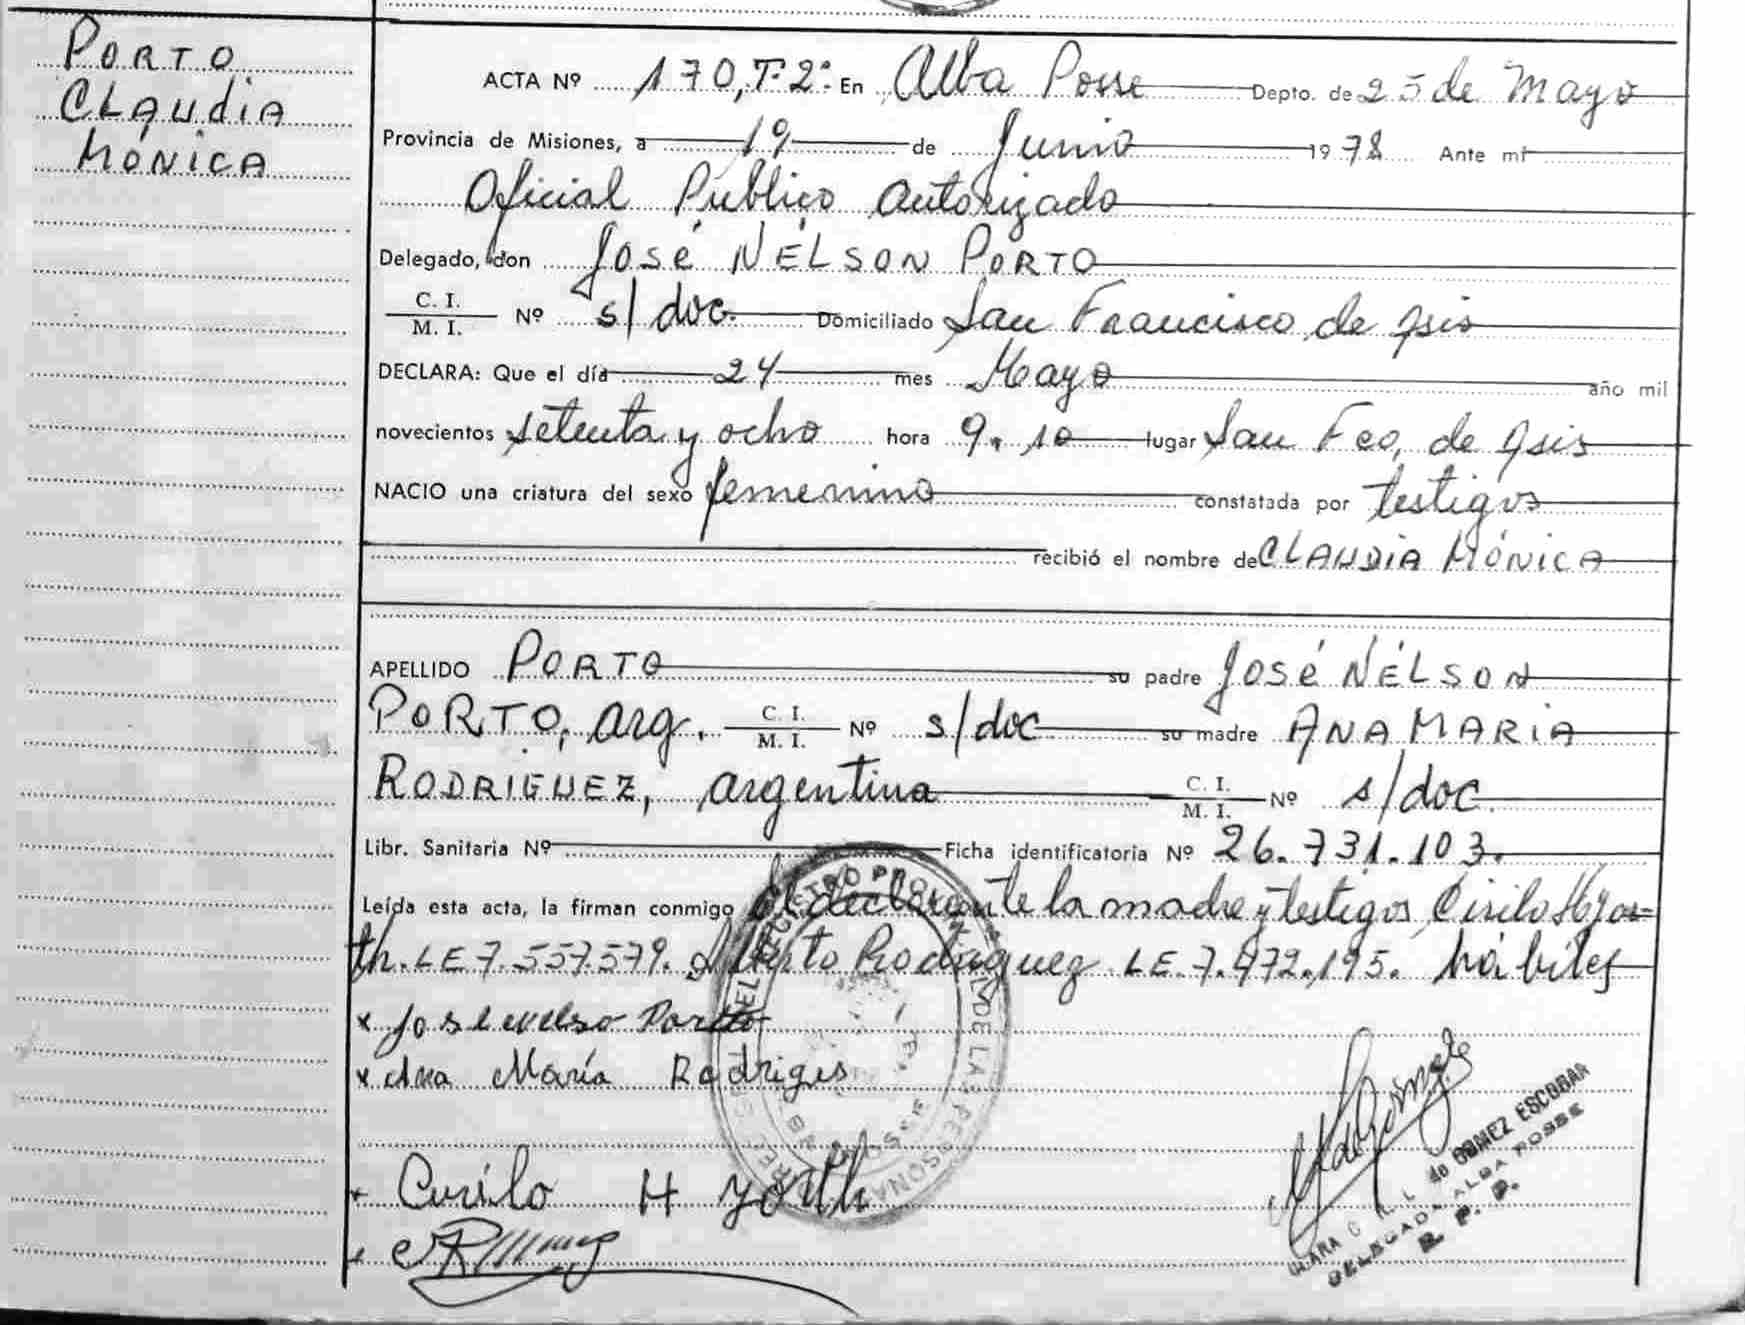 PORTO
CLAUdiA
MÓNiCA
ACTA Nº 170, T-2º. En Alba Posse Depto. de 25 de Mayo
Provincia de Misiones, a 19 de Junio 1978 Ante mí
Oficial Público Autorizado
Delegado, don José NÉLSON PORTO
C. I.
M. I. Nº s/doc. Domiciliado San Francisco de Asis
DECLARA: Que el día 24 mes Mayo año mil
novecientos setenta y ocho hora 9.10 lugar San Fco, de Asis
NACIO una criatura del sexo femenino constatada por testigos
recibió el nombre de CLAUDiA MÓNiCA
APELLIDO PORTO su padre José NÉLSON
PORTO, arg. C. I.
M. I. Nº s/doc su madre ANA MARiA
RODRIGUEZ, argentina C. I.
M. I. Nº s/doc.
Libr. Sanitaria Nº Ficha identificatoria Nº 26.731.103.
Leída esta acta, la firman conmigo el declarante la madre y testigos Cirilo H Yor=
th. LE 7.557.579. Alberto Rodriguez LE. 7.472.195. hábiles
x Jose nelso Porto
x Ana María Rodrigues
x Cirilo H Yorth
GOMEZ ESCOBAR
DELEGADA ALBA POSSE
R. P. P.